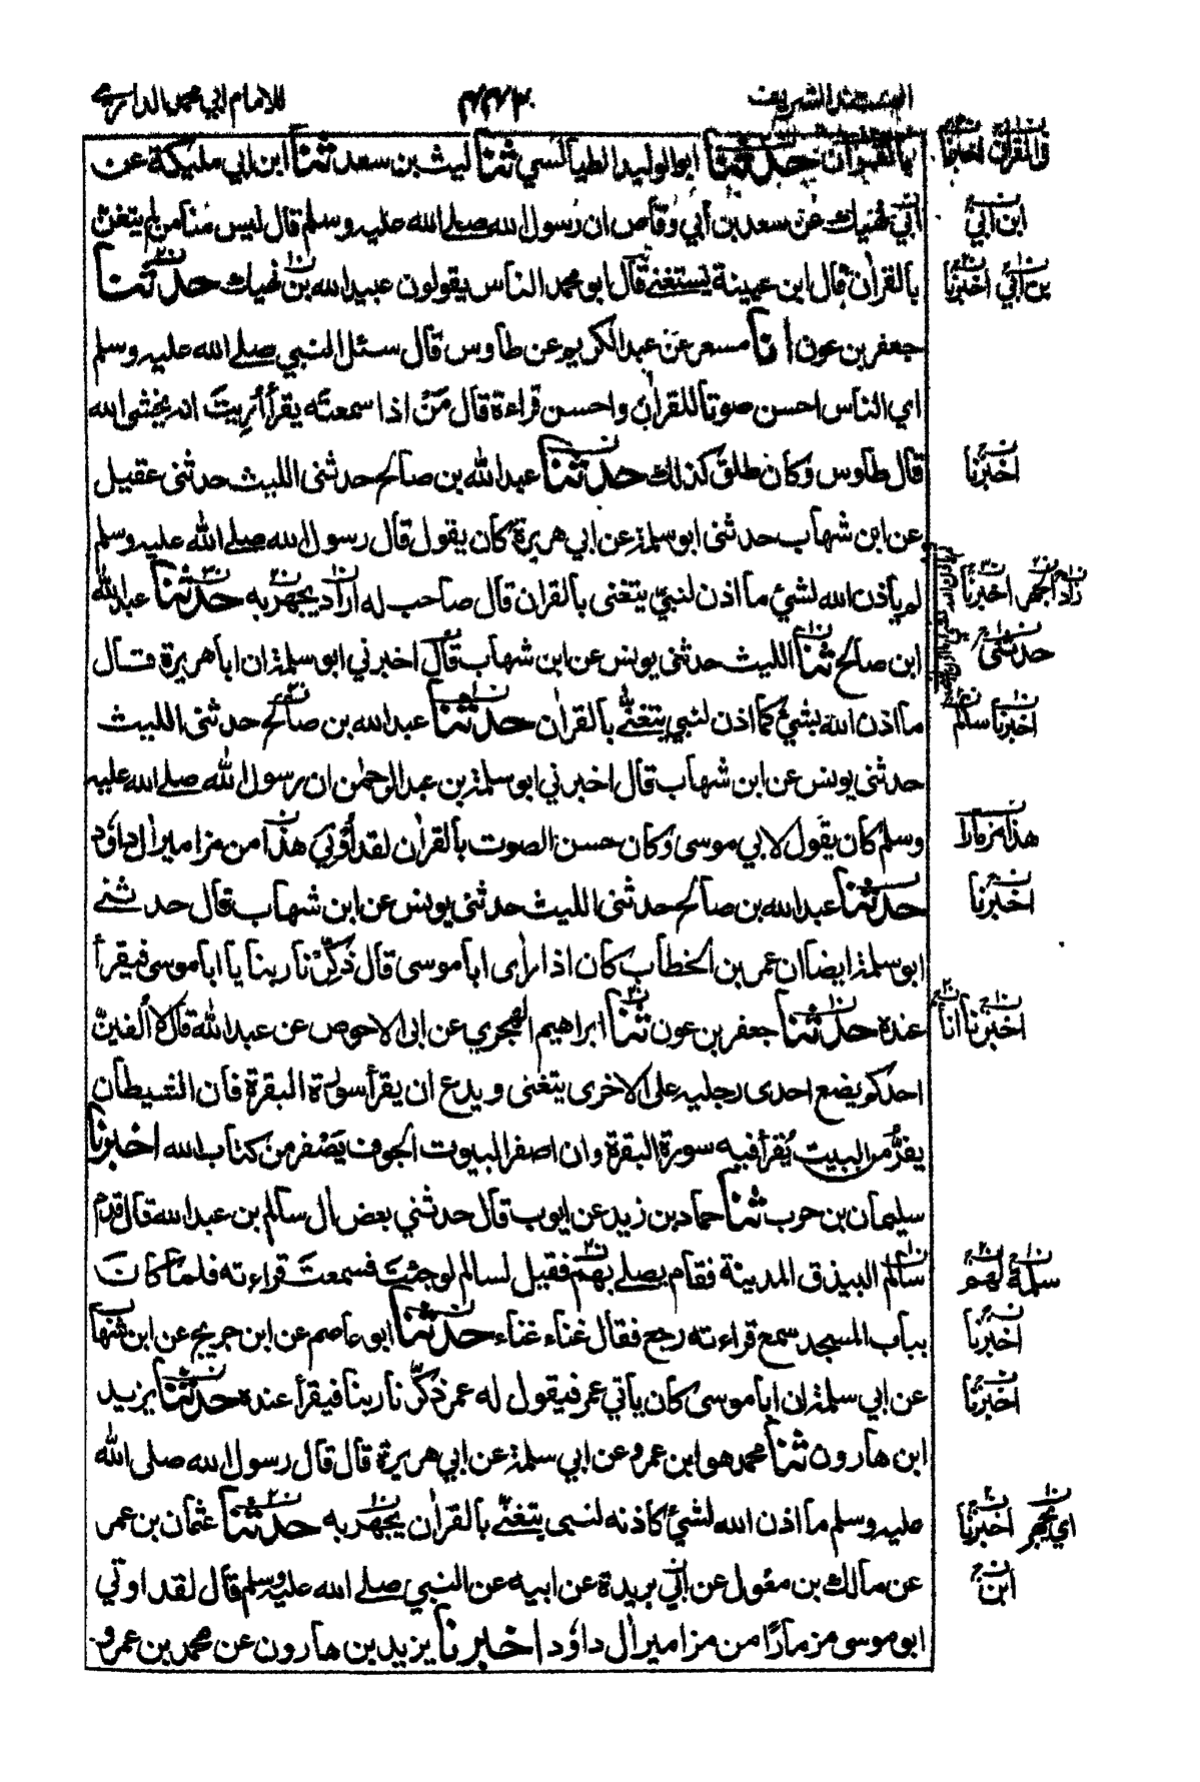 المسند الشريف ٤٤٣ للامام ابي محمد الدارمي
بالقرآن حدثنا ابوالوليد الطيالسي ثنا ليث بن سعد ثنا ابن ابي مليكة عن
ابي نهيك عن سعد بن ابي وقاص ان رسول الله صلے الله عليه وسلم قال ليس منا من لم يتغن
بالقرآن قال ابن عيينة يستغنے قال ابو محمد الناس يقولون عبيد الله بن نهيك حدثنا
جعفر بن عون انا مسعر عن عبد الكريم عن طاوس قال سئل النبي صلے الله عليه وسلم
اي الناس احسن صوتا للقرآن واحسن قراءة قال مَنْ اذا سمعتَه يقرأ أُرِيتَ انه يخشى الله
قال طاوس وكان طلق كذلك حدثنا عبد الله بن صالح حدثنى الليث حدثنى عقيل
عن ابن شهاب حدثنى ابو سلمة عن ابي هريرة كان يقول قال رسول الله صلے الله عليه وسلم
لم يأذن الله لشيء ما اذن لنبيّ يتغنى بالقران قال صاحب له اراد يجهر به حدثنا عبد الله
ابن صالح ثنا الليث حدثنى يونس عن ابن شهاب قال اخبرني ابو سلمة ان ابا هريرة قال
ما اذن الله بشيء كما اذن لنبي يتغنّے بالقران حدثنا عبد الله بن صالح حدثنى الليث
حدثنى يونس عن ابن شهاب قال اخبرني ابو سلمة بن عبد الرحمٰن ان رسول الله صلے الله عليه
وسلم كان يقول لابي موسى وكان حسن الصوت بالقرآن لقد أُوتِيَ هذا من مزامير اٰل داؤد
حدثنا عبد الله بن صالح حدثنى الليث حدثنى يونس عن ابن شهاب قال حدثنے
ابو سلمة ايضا ان عمر بن الخطاب كان اذا رأى ابا موسى قال ذَكِّرْنا ربنا يا ابا موسى فيقرأ
عنده حدثنا جعفر بن عون ثنا ابراهيم الهجري عن ابى الاحوص عن عبد الله قال لا أُلفينّ
احدكم يضع احدى رجليه على الاخرى يتغنى ويدع ان يقرأ سورة البقرة فان الشيطان
يفرّ من البيت يُقرأ فيه سورة البقرة وان اصفر البيوت الجوف يَصْفر من كتاب الله اخبرنا
سليمان بن حرب ثنا حماد بن زيد عن ايوب قال حدثني بعض اٰل سالم بن عبد الله قال قدم
سالم البيذق المدينة فقام يصلے بهم فقيل لسالم لو جئتَ فسمعتَ قراءته فلما كان
بباب المسجد سمع قراءته رجع فقال غناء غناء حدثنا ابو عاصم عن ابن جريج عن ابن شهاب
عن ابي سلمة ان ابا موسى كان يأتي عمر فيقول له عمر ذكّرنا ربنا فيقرأ عنده حدثنا يزيد
ابن هارون ثنا محمد هو ابن عمرو عن ابي سلمة عن ابي هريرة قال قال رسول الله صلى الله
عليه وسلم ما اذن الله لشيء كاذنه لنبى يتغنّے بالقرآن يجهر به حدثنا عثمان بن عمر
عن مالك بن مغول عن ابي بريدة عن ابيه عن النبي صلے الله عليه وسلم قال لقد اوتي
ابو موسى مزمارًا من مزامير اٰل داؤد اخبرنا يزيد بن هارون عن محمد بن عمرو
فى القرآن اخبرنا
ابن ابي
بن ابي اخبرنا
اخبرنا
زاد اجهر اخبرنا
حدثنى
اخبرنا سالم
هذا مزمارا
اخبرنا
اخبرنا انا
سلمة لهم
اخبرنا
اخبرنا
اي يجهر اخبرنا
ابن